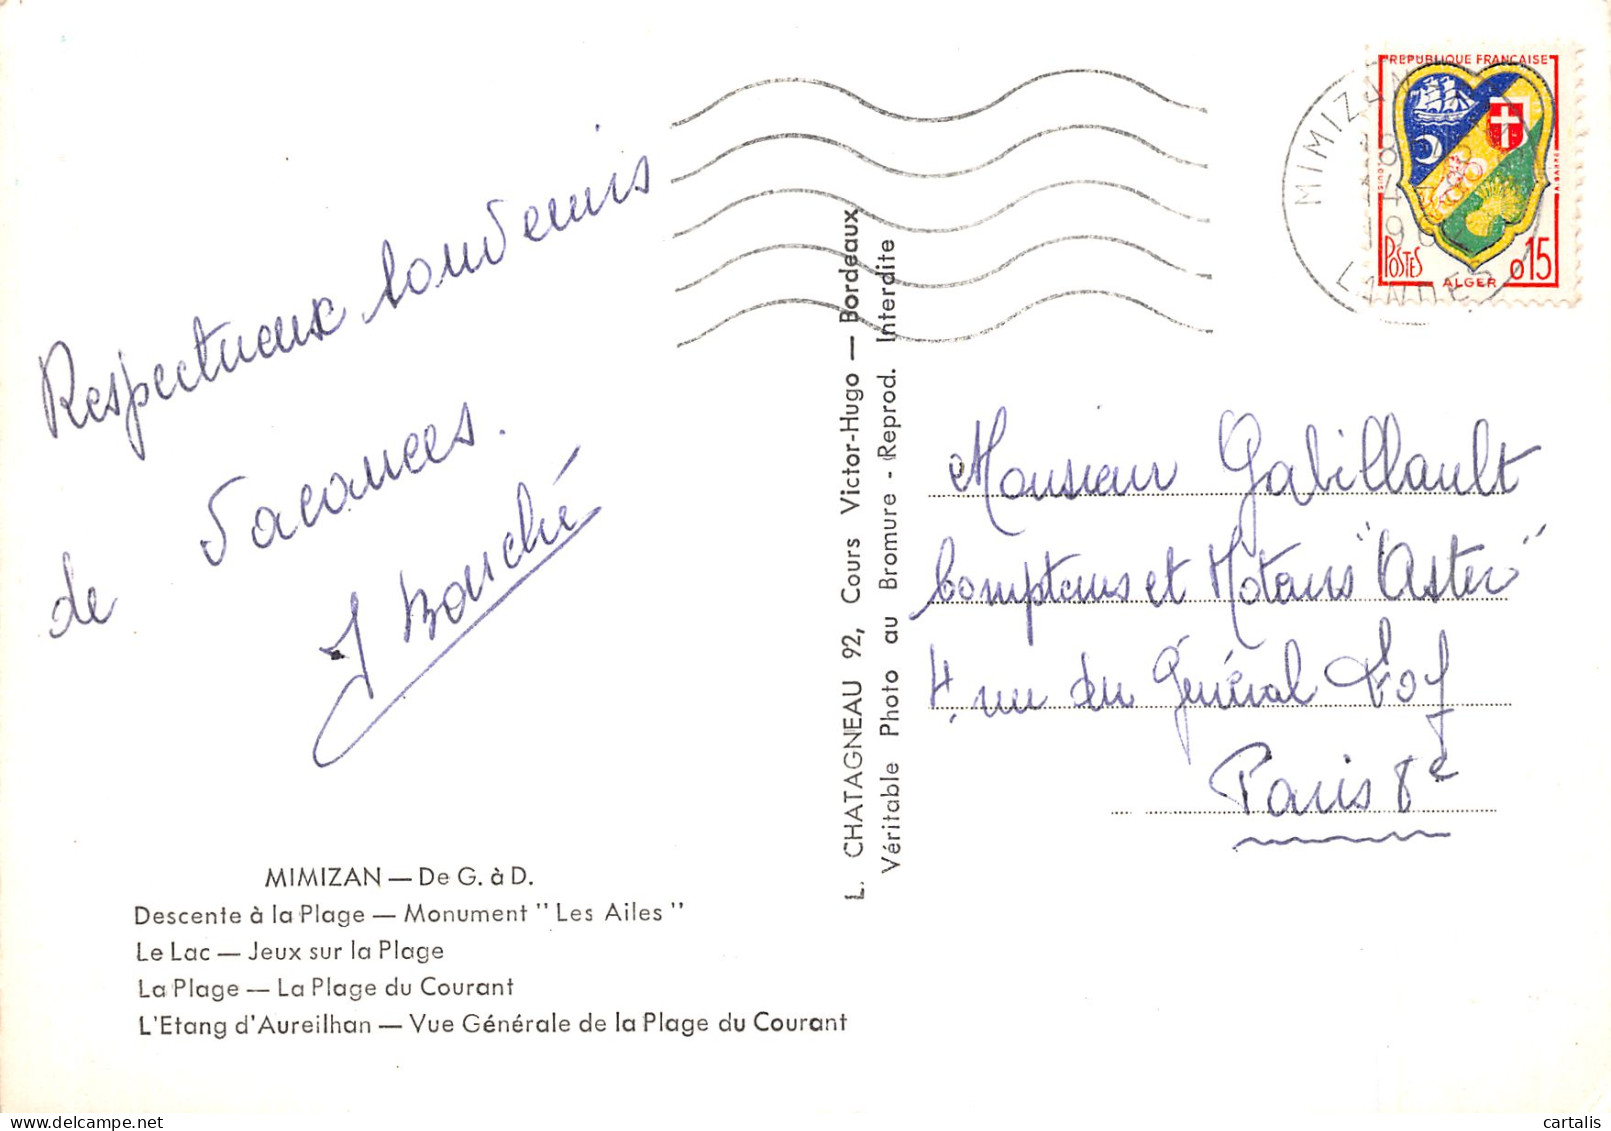 Respectueux souvenirs
de vacances.
J Bouché
MIMIZAN — De G. à D.
Descente à la Plage — Monument " Les Ailes "
Le Lac — Jeux sur la Plage
La Plage — La Plage du Courant
L'Etang d'Aureilhan — Vue Générale de la Plage du Courant
L. CHATAGNEAU 92, Cours Victor-Hugo — Bordeaux
Véritable Photo au Bromure - Reprod. Interdite
MIMIZAN
18
LANDES
REPUBLIQUE FRANÇAISE
POSTES
ALGER
0 15
Monsieur Gabillault
Compteurs et Moteurs "Aster"
4, rue du Général Foy
Paris 8e
cartalis